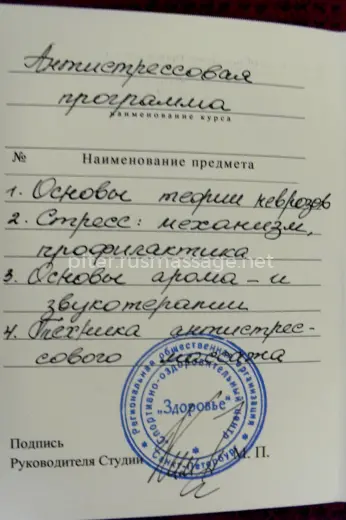 Антистрессовая
программа
наименование курса
№ Наименование предмета
1. Основы теории неврозов
2. Стресс: механизм,
профилактика
piter.rusmassage.net
3. Основы арома – и
звукотерапии
4. Техника антистрес-
сового массажа
Региональная общественная организация
Спортивно-оздоровительный центр
„Здоровье"
Санкт-Петербург
Подпись
Руководителя Студии
М. П.